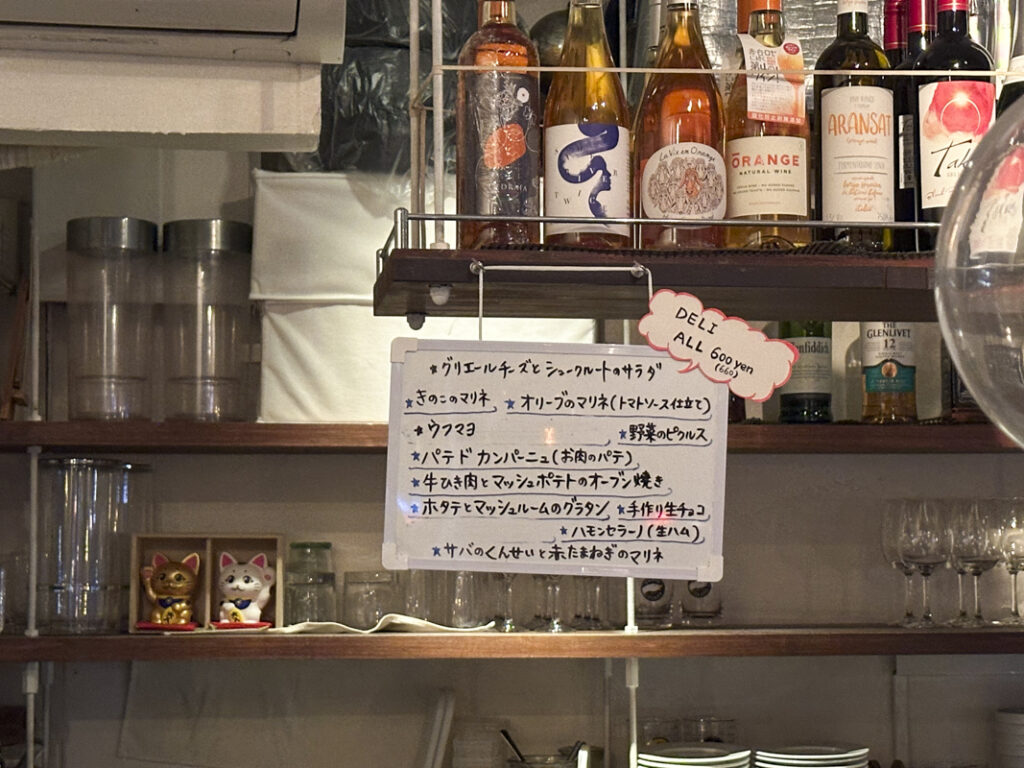 TWIR
La Vie en Orange
ORANGE
NATURAL WINE
ARANSAT
orange wine
DELI
ALL 600 yen
(660)
★グリエールチーズとシュークルートのサラダ
★きのこのマリネ ★オリーブのマリネ(トマトソース仕立て)
★ウフマヨ ★野菜のピクルス
★パテド カンパーニュ(お肉のパテ)
★牛ひき肉とマッシュポテトのオーブン焼き
★ホタテとマッシュルームのグラタン ★手作り生チョコ
★ハモンセラーノ(生ハム)
★サバのくんせいと赤たまねぎのマリネ
THE
GLENLIVET
12